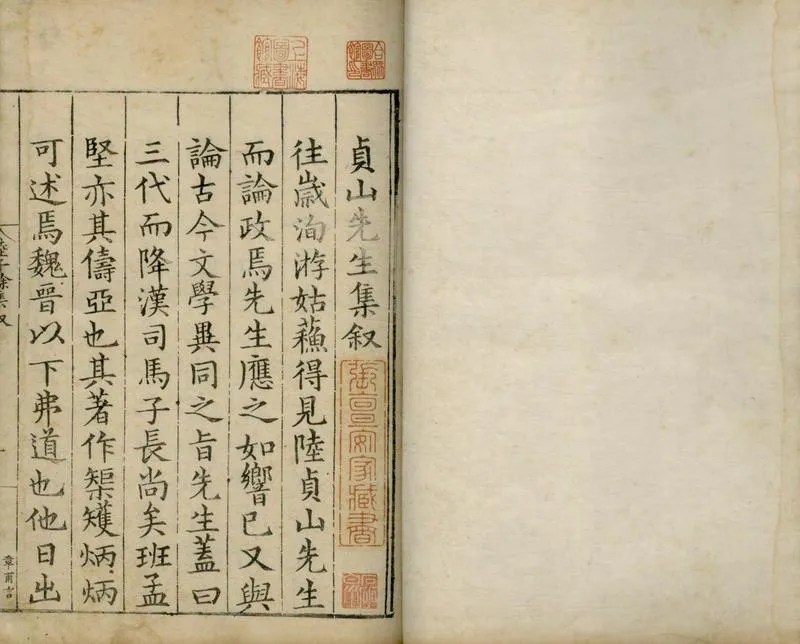 上海圖書館藏
貞山先生集叙
往歲洵游姑蘓得見陸貞山先生
而論政焉先生應之如響已又與
論古今文學異同之旨先生蓋曰
三代而降漢司馬子長尚矣班孟
堅亦其儔亞也其著作榘矱炳炳
可述焉魏晉以下弗道也他日出
陸子餘集叙
章甫言